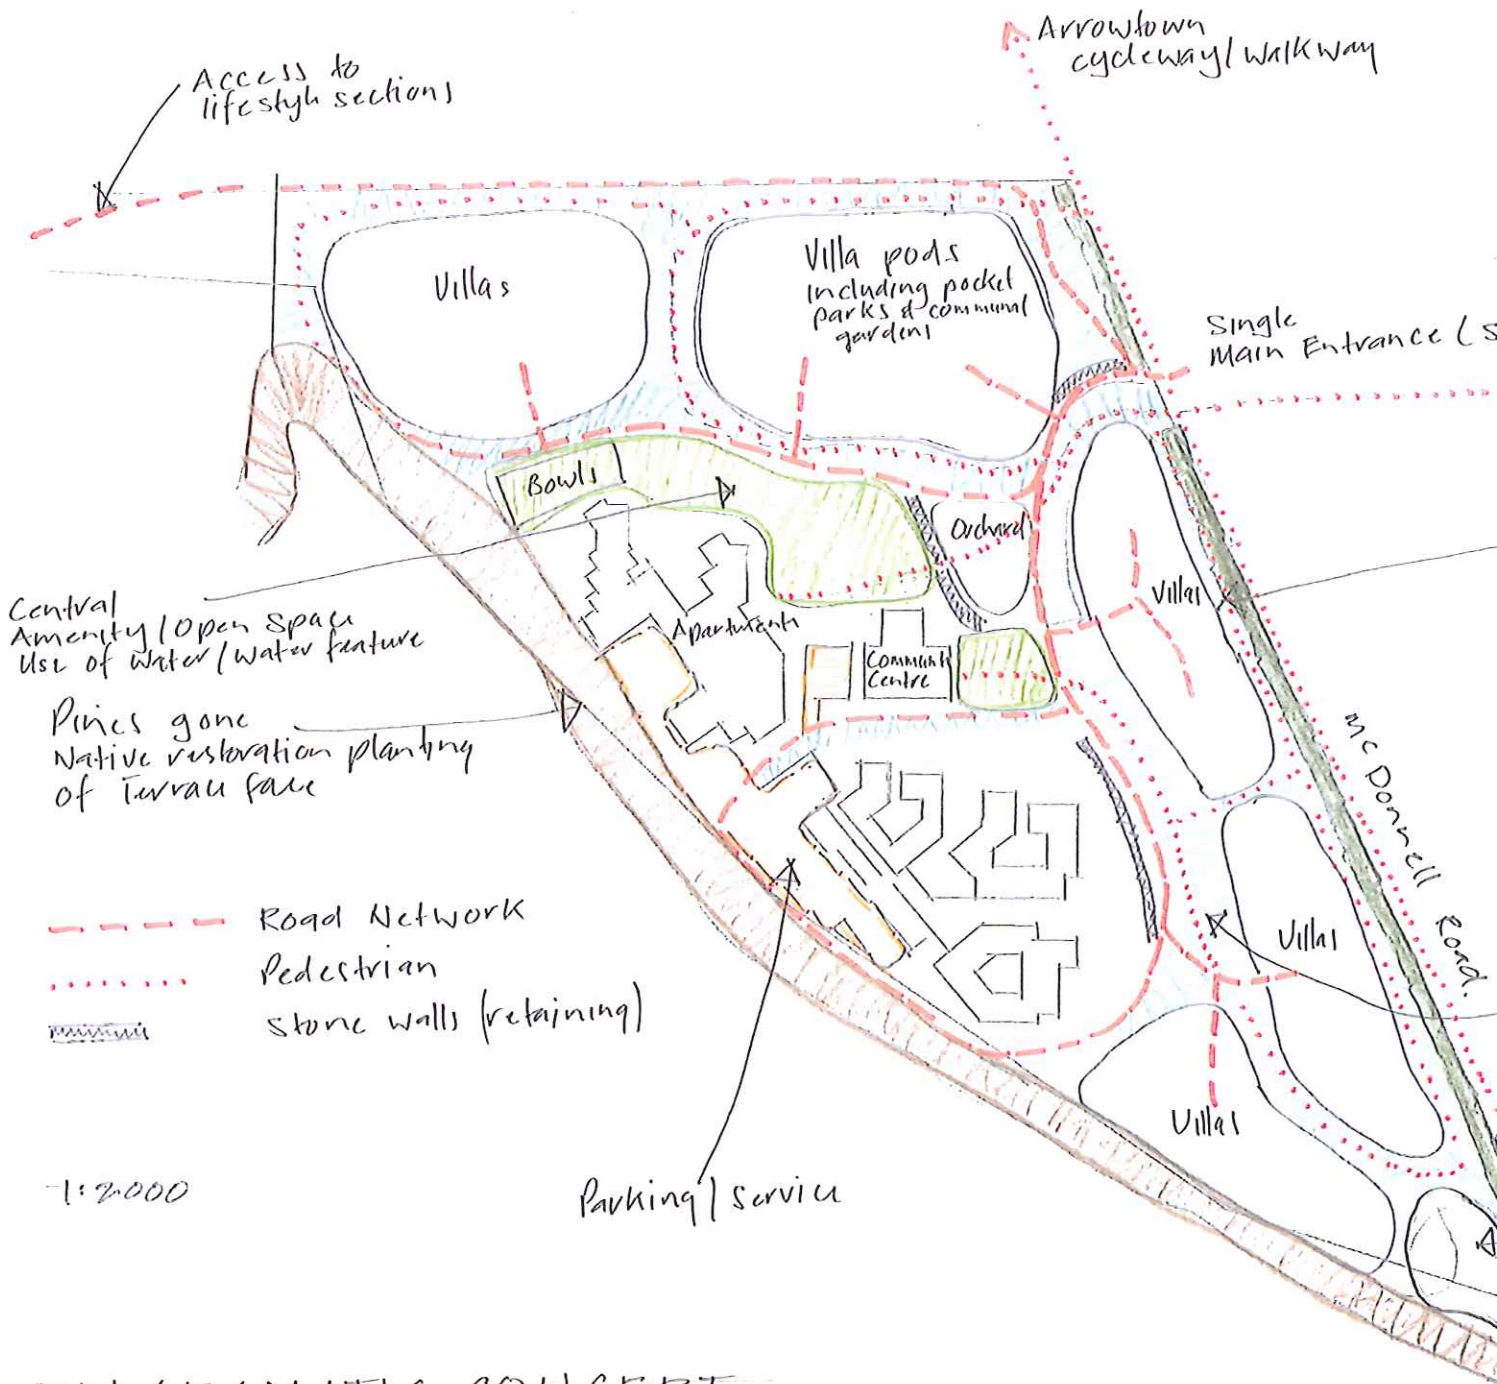 Arrowtown
cycleway/walkway
Access to
lifestyle sections
Villas
Villa pods
including pocket
parks & communal
gardens
Single
Main Entrance (S
Bowls
Orchard
Villas
Central
Amenity/Open Space
Use of water/water feature
Apartments
Community
Centre
Pines gone
Native restoration planting
of Terrace face
McDonnell Road.
Road Network
Pedestrian
Stone walls (retaining)
Villas
Villas
1:2000
Parking/service
CONCEPT